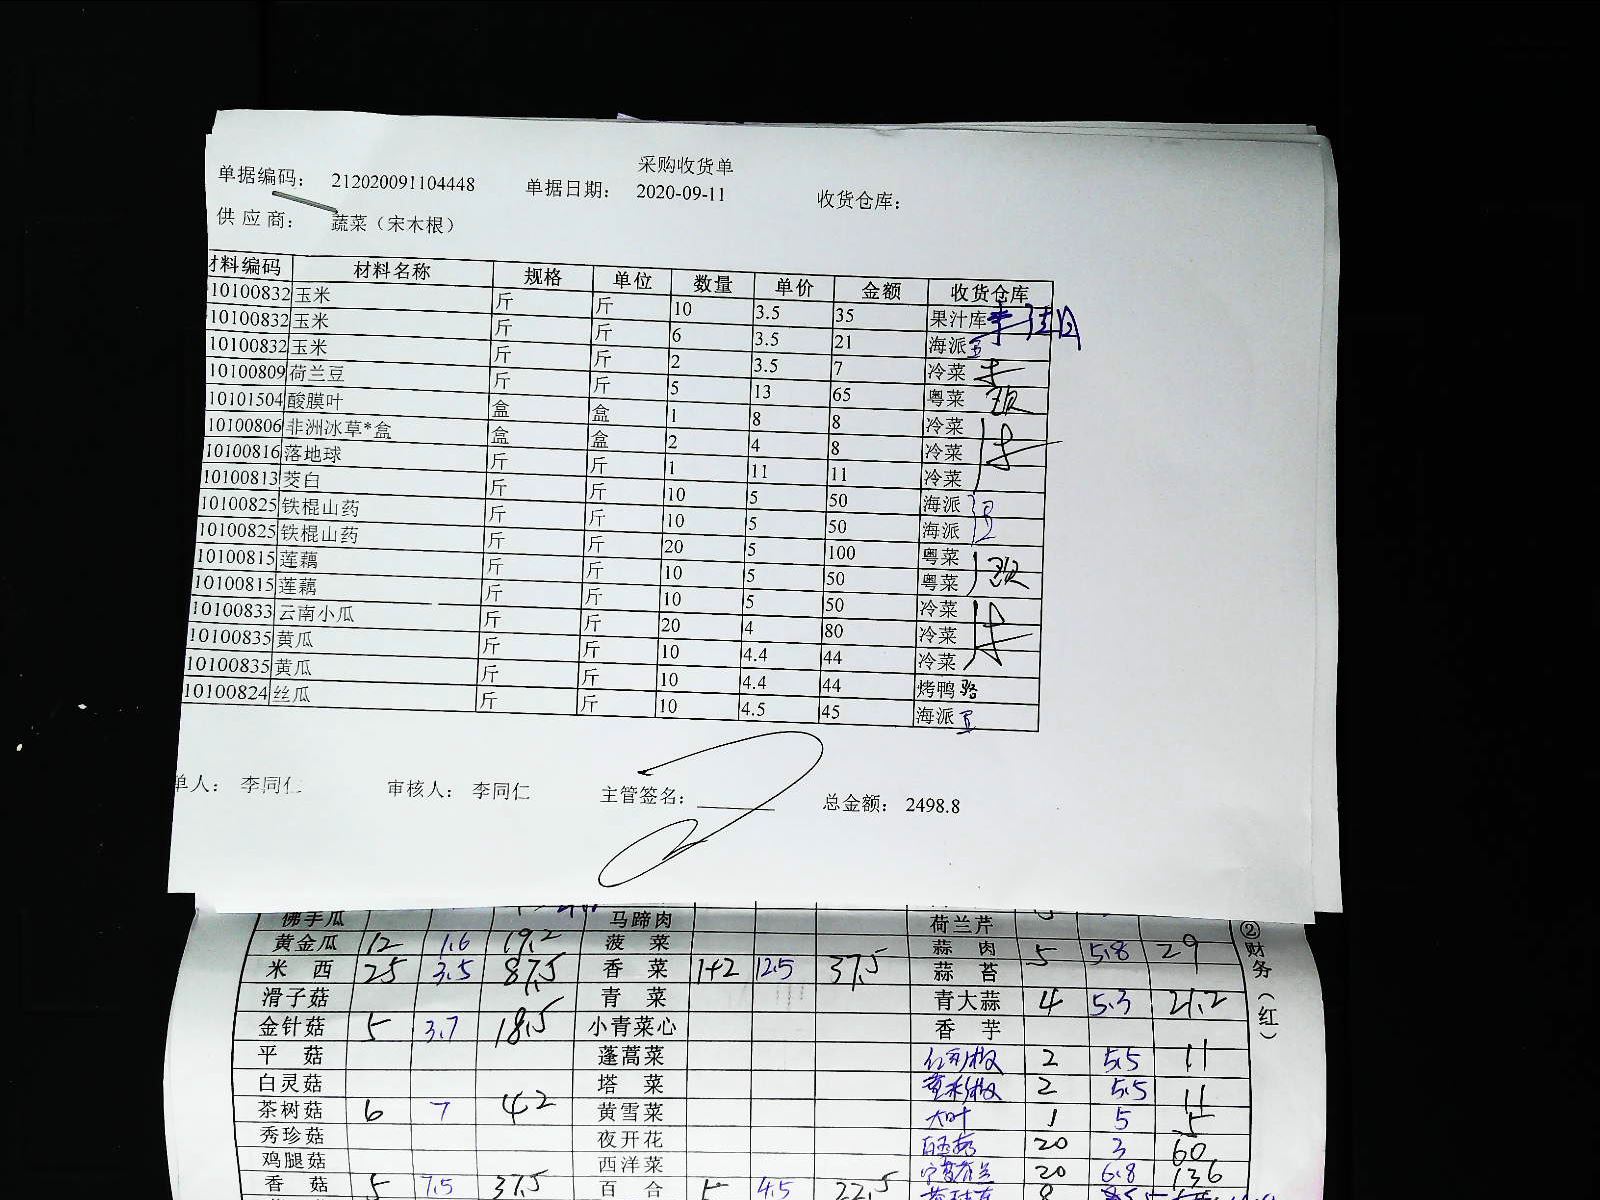 采购收货单
单据编码： 212020091104448 单据日期： 2020-09-11 收货仓库：
供 应 商： 蔬菜（宋木根）
材料编码 材料名称 规格 单位 数量 单价 金额 收货仓库
10100832 玉米 斤 斤 10 3.5 35 果汁库
10100832 玉米 斤 斤 6 3.5 21 海派
10100832 玉米 斤 斤 2 3.5 7 冷菜
10100809 荷兰豆 斤 斤 5 13 65 粤菜
10101504 酸膜叶 盒 盒 1 8 8 冷菜
10100806 非洲冰草*盒 盒 盒 2 4 8 冷菜
10100816 落地球 斤 斤 1 11 11 冷菜
10100813 茭白 斤 斤 10 5 50 海派
10100825 铁棍山药 斤 斤 10 5 50 海派
10100825 铁棍山药 斤 斤 20 5 100 粤菜
10100815 莲藕 斤 斤 10 5 50 粤菜
10100815 莲藕 斤 斤 10 5 50 冷菜
10100833 云南小瓜 斤 斤 20 4 80 冷菜
10100835 黄瓜 斤 斤 10 4.4 44 冷菜
10100835 黄瓜 斤 斤 10 4.4 44 烤鸭
10100824 丝瓜 斤 斤 10 4.5 45 海派
单人： 李同仁 审核人： 李同仁 主管签名： 总金额： 2498.8
佛手瓜 马蹄肉 荷兰芹
黄金瓜 12 1.6 19.2 菠菜 蒜肉 5 5.8 29
米西 25 3.5 87.5 香菜 1+2 12.5 37.5 蒜苔
滑子菇 青菜 青大蒜 4 5.3 21.2
金针菇 5 3.7 18.5 小青菜心 香芋
平菇 蓬蒿菜 2 5.5 11
白灵菇 塔菜 2 5.5 11
茶树菇 6 7 42 黄雪菜 大叶 1 5 5
秀珍菇 夜开花 20 3 60
鸡腿菇 西洋菜 20 6.8 136
香菇 5 7.5 37.5 百合 5 4.5 22.5 8
②财务（红）